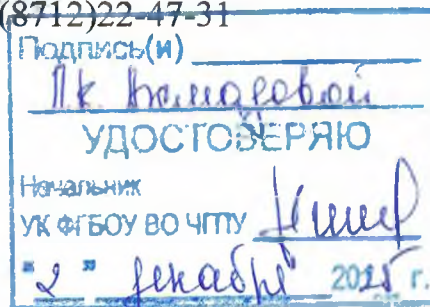 (8712)22-47-31
Подпись(и)
УДОСТОВЕРЯЮ
Начальник
УК ФГБОУ ВО ЧГПУ
"2" декабря 2025 г.